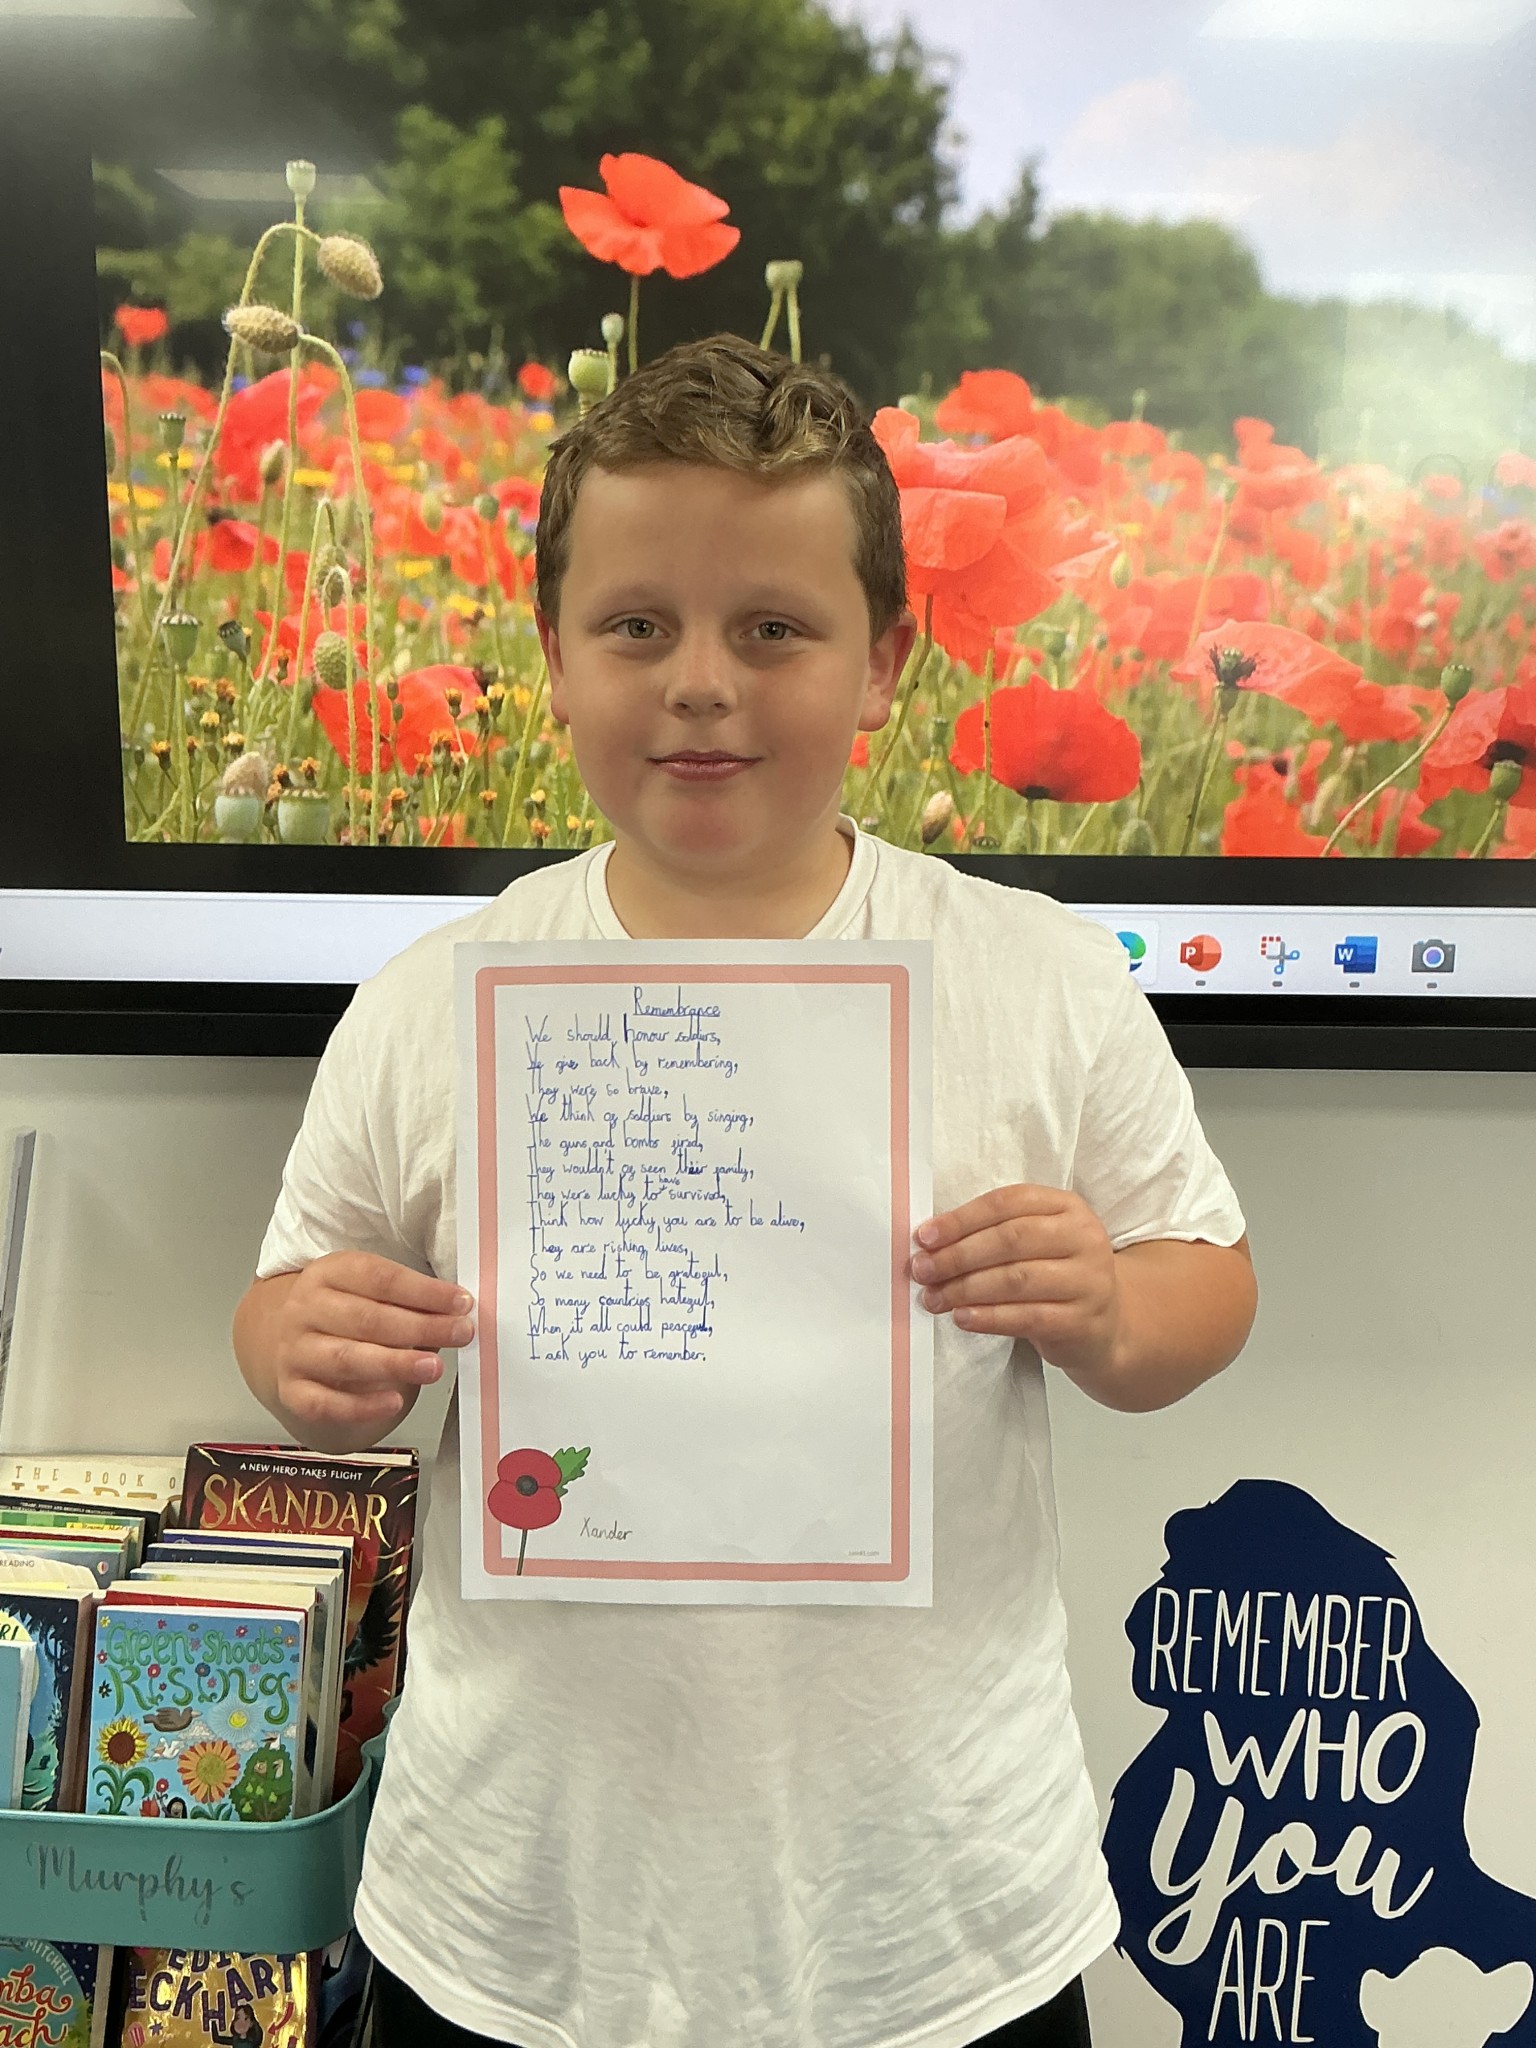 Remembrance
We should honour soldiers,
We give back by remembering,
They were so brave,
We think of soldiers by singing,
The guns and bombs fired,
They wouldn't of seen their family,
They were lucky to have survived,
Think how lucky you are to be alive,
They are risking lives,
So we need to be grateful,
So many countries hateful,
When it all could peaceful,
I ask you to remember.
Xander
THE BOOK O
A NEW HERO TAKES FLIGHT
SKANDAR
AND THE
READING
Green Shoots
Rising
Murphy's
MITCHELL
ECKHART
REMEMBER
WHO
You
ARE